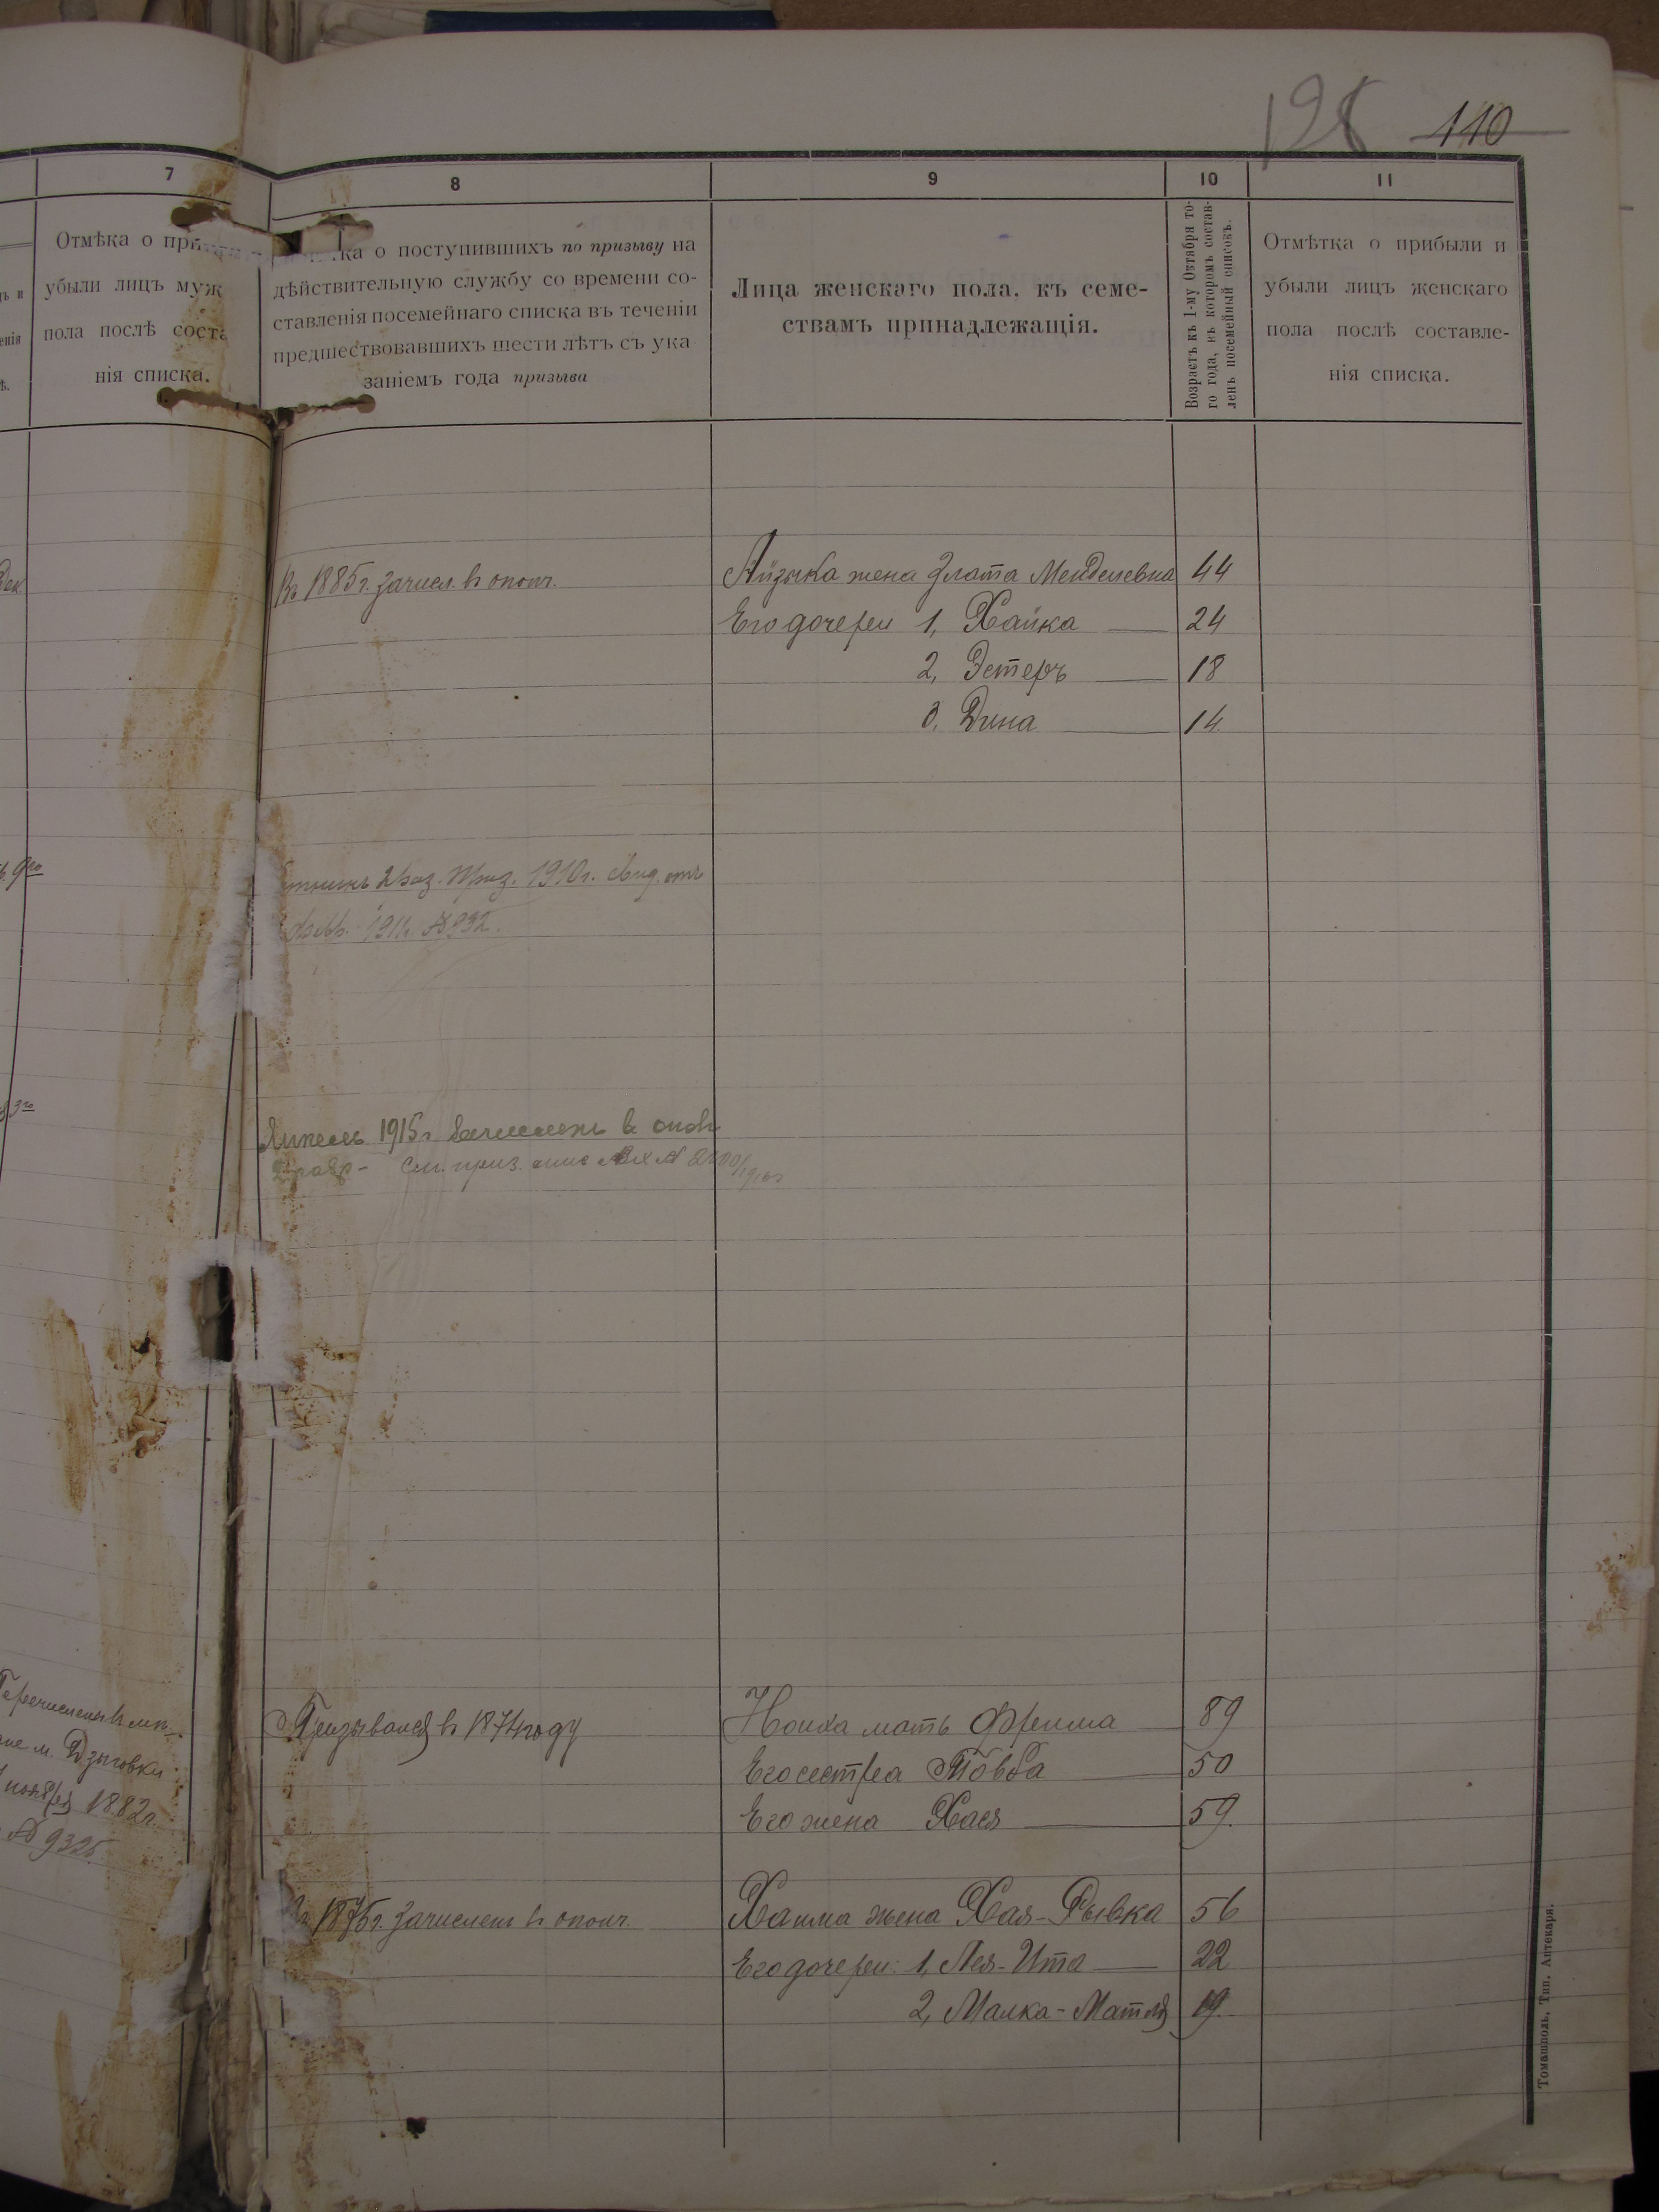 128 110
7
8
9
10
11
Отмѣка о при
убыли лицъ муж
пола послѣ соста
нія списка.
ка о поступившихъ по призыву на
дѣйствительную службу со времени со-
ставленія посемейнаго списка въ теченіи
предшествовавшихъ шести лѣтъ съ ука
заніемъ года призыва
Лица женскаго пола, къ семе-
ствамъ принадлежащія.
Возрастъ къ 1-му Октября то-
го года, въ которомъ состав-
ленъ посемейный списокъ.
Отмѣтка о прибыли и
убыли лицъ женскаго
пола послѣ составле-
нія списка.
Въ 1885г. зачисл. въ ополч.
Айзыка жена Злата Менделевна 44
Его дочери 1, Хайка 24
2, Эстеръ 18
3, Дина 14
2 раз. Приз. 1910г. свид. отъ
1911 № 932.
1915г зачисленъ в опол
2 разр - См. приз.
Перечисленъ въ мѣ-
не м. Дзыговки
ноября 1882г.
№ 9325.
Призывался въ 1874 году
Ноиха мать Фрейма 89
Его сестра Товба 50
Его жена Хася 59.
Въ 1875г. зачисленъ въ ополч.
Хаима жена Хая-Рывка 56
Его дочери: 1, Лея-Ита 22
2, Малка-Матля 19.
Томашполь, Тип. Аптекаря.